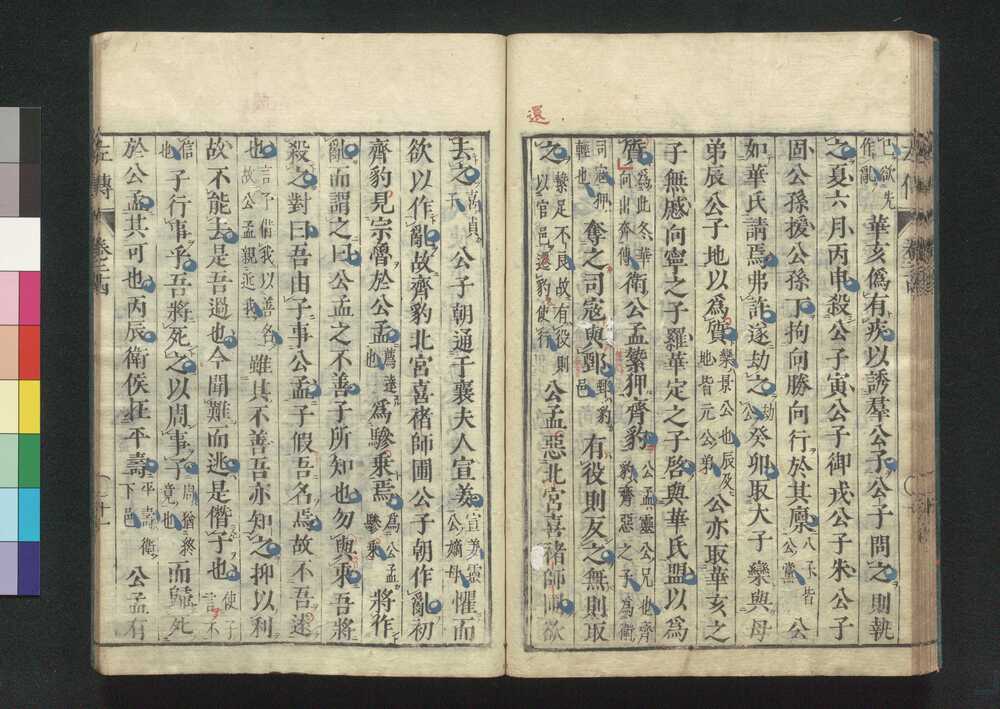 還
已欲先作亂華亥僞有疾以誘羣公子公子問之則執
之夏六月丙申殺公子寅公子御戎公子朱公子
固公孫援公孫丁拘向勝向行於其廩八子皆公黨公
如華氏請焉弗許遂劫之劫公癸卯取大子欒與母
弟辰公子地以爲質欒景公也辰及地皆元公弟公亦取華亥之
子無慼向寧之子羅華定之子啓與華氏盟以爲
質爲此冬華向出奔傳衛公孟縶狎齊豹公孟靈公兄也齊豹齊惡之子爲衛
司寇狎輕也奪之司寇與鄄鄄豹邑有役則反之無則取
之縶足不良故有役則以官邑還豹使行公孟惡北宮喜褚師圃欲
去之喜貞子公子朝通于襄夫人宣姜宣姜靈公嫡母懼而
欲以作亂故齊豹北宮喜褚師圃公子朝作亂初
齊豹見宗魯於公孟薦達也爲驂乘焉爲公孟驂乘將作
亂而謂之曰公孟之不善子所知也勿與乘吾將
殺之對曰吾由子事公孟子假吾名焉故不吾遠
也言子借我以善名故公孟親近我雖其不善吾亦知之抑以利
故不能去是吾過也今聞難而逃是僭子也使子言不
信也子行事乎吾將死之以周事子周猶終竟也而歸死
於公孟其可也丙辰衛侯在平壽平壽衛下邑公孟有
左傳 卷二四